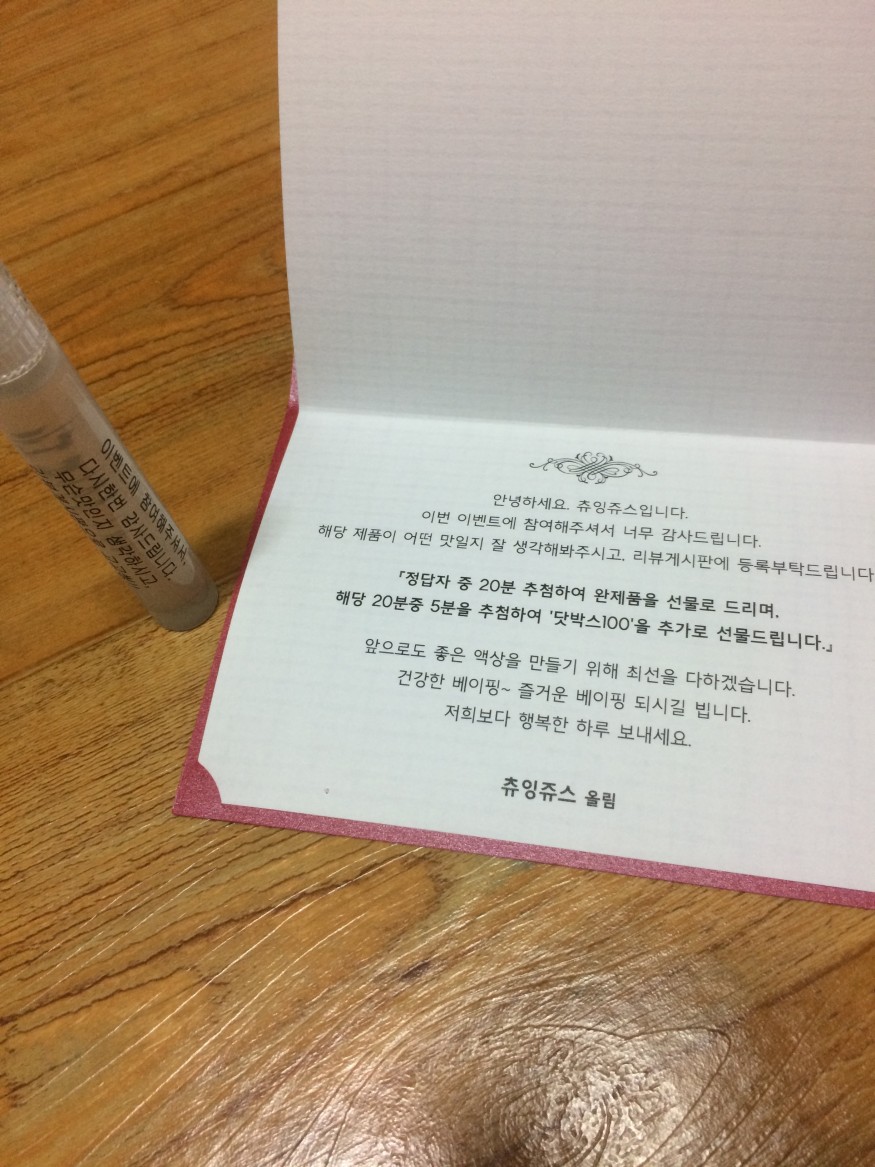 이벤트에 참여해주셔서,
다시한번 감사드립니다.
무슨맛인지 생각하시고,
안녕하세요. 츄잉쥬스입니다.
이번 이벤트에 참여해주셔서 너무 감사드립니다.
해당 제품이 어떤 맛일지 잘 생각해봐주시고. 리뷰게시판에 등록부탁드립니다
『정답자 중 20분 추첨하여 완제품을 선물로 드리며,
해당 20분중 5분을 추첨하여 '닷박스100'을 추가로 선물드립니다.』
앞으로도 좋은 액상을 만들기 위해 최선을 다하겠습니다.
건강한 베이핑~ 즐거운 베이핑 되시길 빕니다.
저희보다 행복한 하루 보내세요.
츄잉쥬스 올림